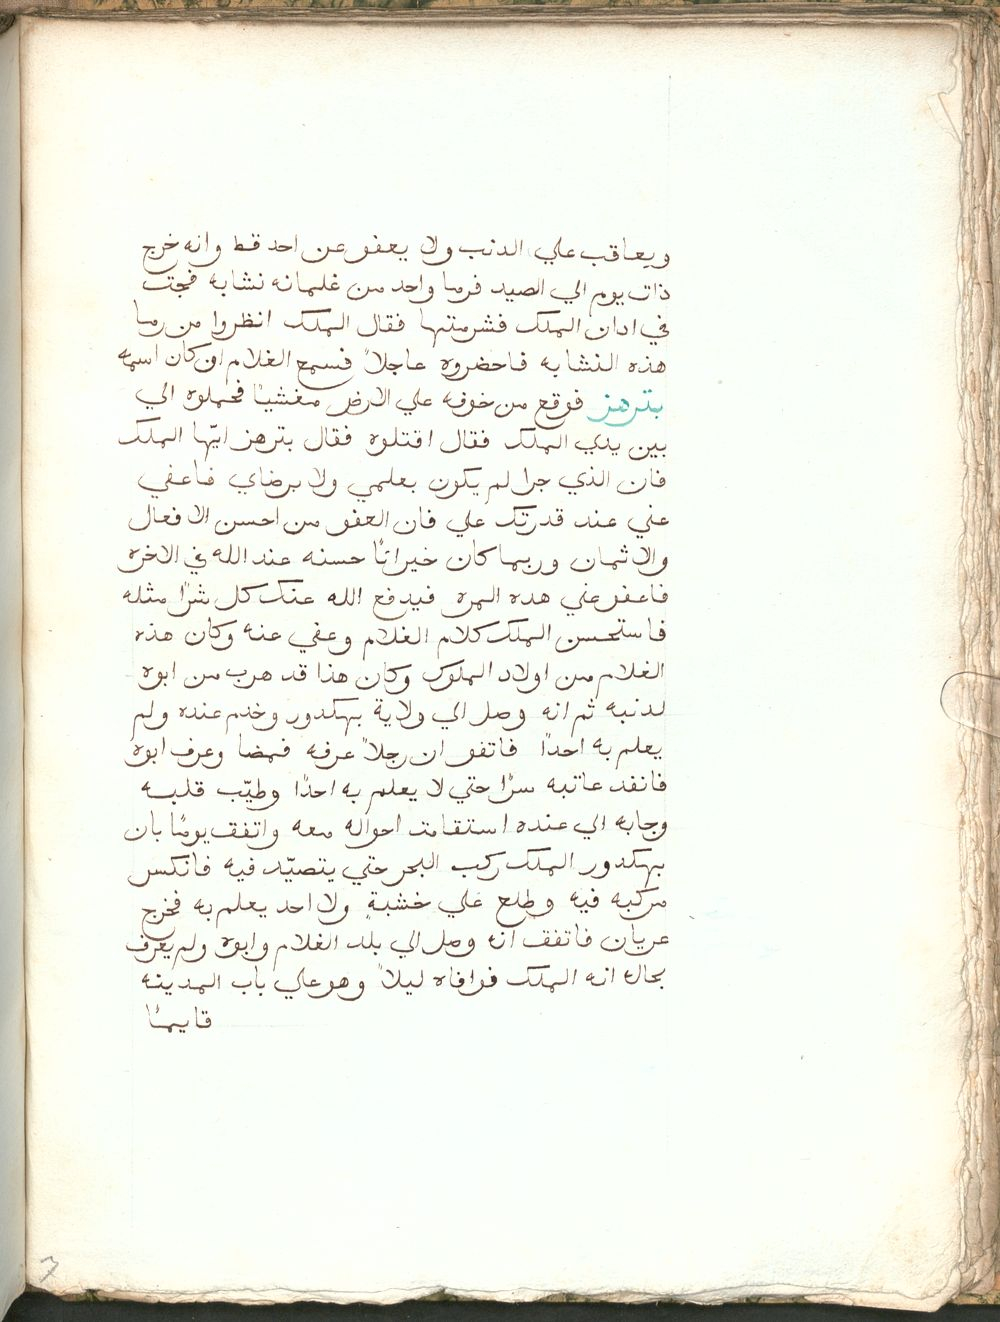 ويعاقب علي الدنب ولا يعفو عن احد قط وانه خرج
ذات يوم الي الصيد فرما واحد من غلمانه نشابه فجت
في ادان الملك فشرمتها فقال الملك انظروا من رما
هذه النشابه فاحضروه عاجلاً فسمع الغلام اوكان اسمه
بترهز فوقع من خوفه علي الارض مغشياً فحملوه الي
بين يدي الملك فقال اقتلوه فقال بترهز ايّها الملك
فان الذي جرا لم يكون بعلمي ولا برضاي فاعفي
عني عند قدرتك علي فان العفو من احسن الافعال
والاثمان وربما كان خيراتاً حسنه عند الله في الاخره
فاعفو عني هده المره فيدفع الله عنك كل شرًا مثله
فاستحسن الملك كلام الغلام وعفي عنه وكان هذه
الغلام من اولاد الملوك وكان هذا قد هرب من ابوه
لدنبه ثم انه وصل الي ولاية بهكدور وخدم عنده ولم
يعلم به احدًا فاتفو ان رجلاً عرفه فمضا وعرف ابوه
فانفد عاتبه سرًا حتي لا يعلم به احدًا وطيّب قلبه
وجابه الي عنده استقامت احواله معه واتفق يومًا بان
بهكدور الملك ركب البحر حتي يتصيّد فيه فانكس
مركبه فيه وطلع علي خشبةٍ ولا احد يعلم به فخرج
عريان فاتفق انه وصل الي بلد الغلام وابوه ولم يعرف
بحاله انه الملك فوافاه ليلاً وهو علي باب المدينه
قايمًا